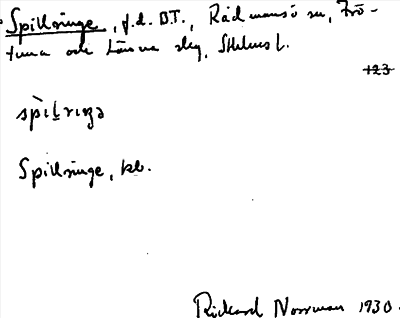 Spillringe, f.d. BT., Rådmansö sn, Frö-
tuna och Länna slg, Sthlms l.
123
spìlriŋə
Spillringe, kb.
Rickard Norrman 1930.